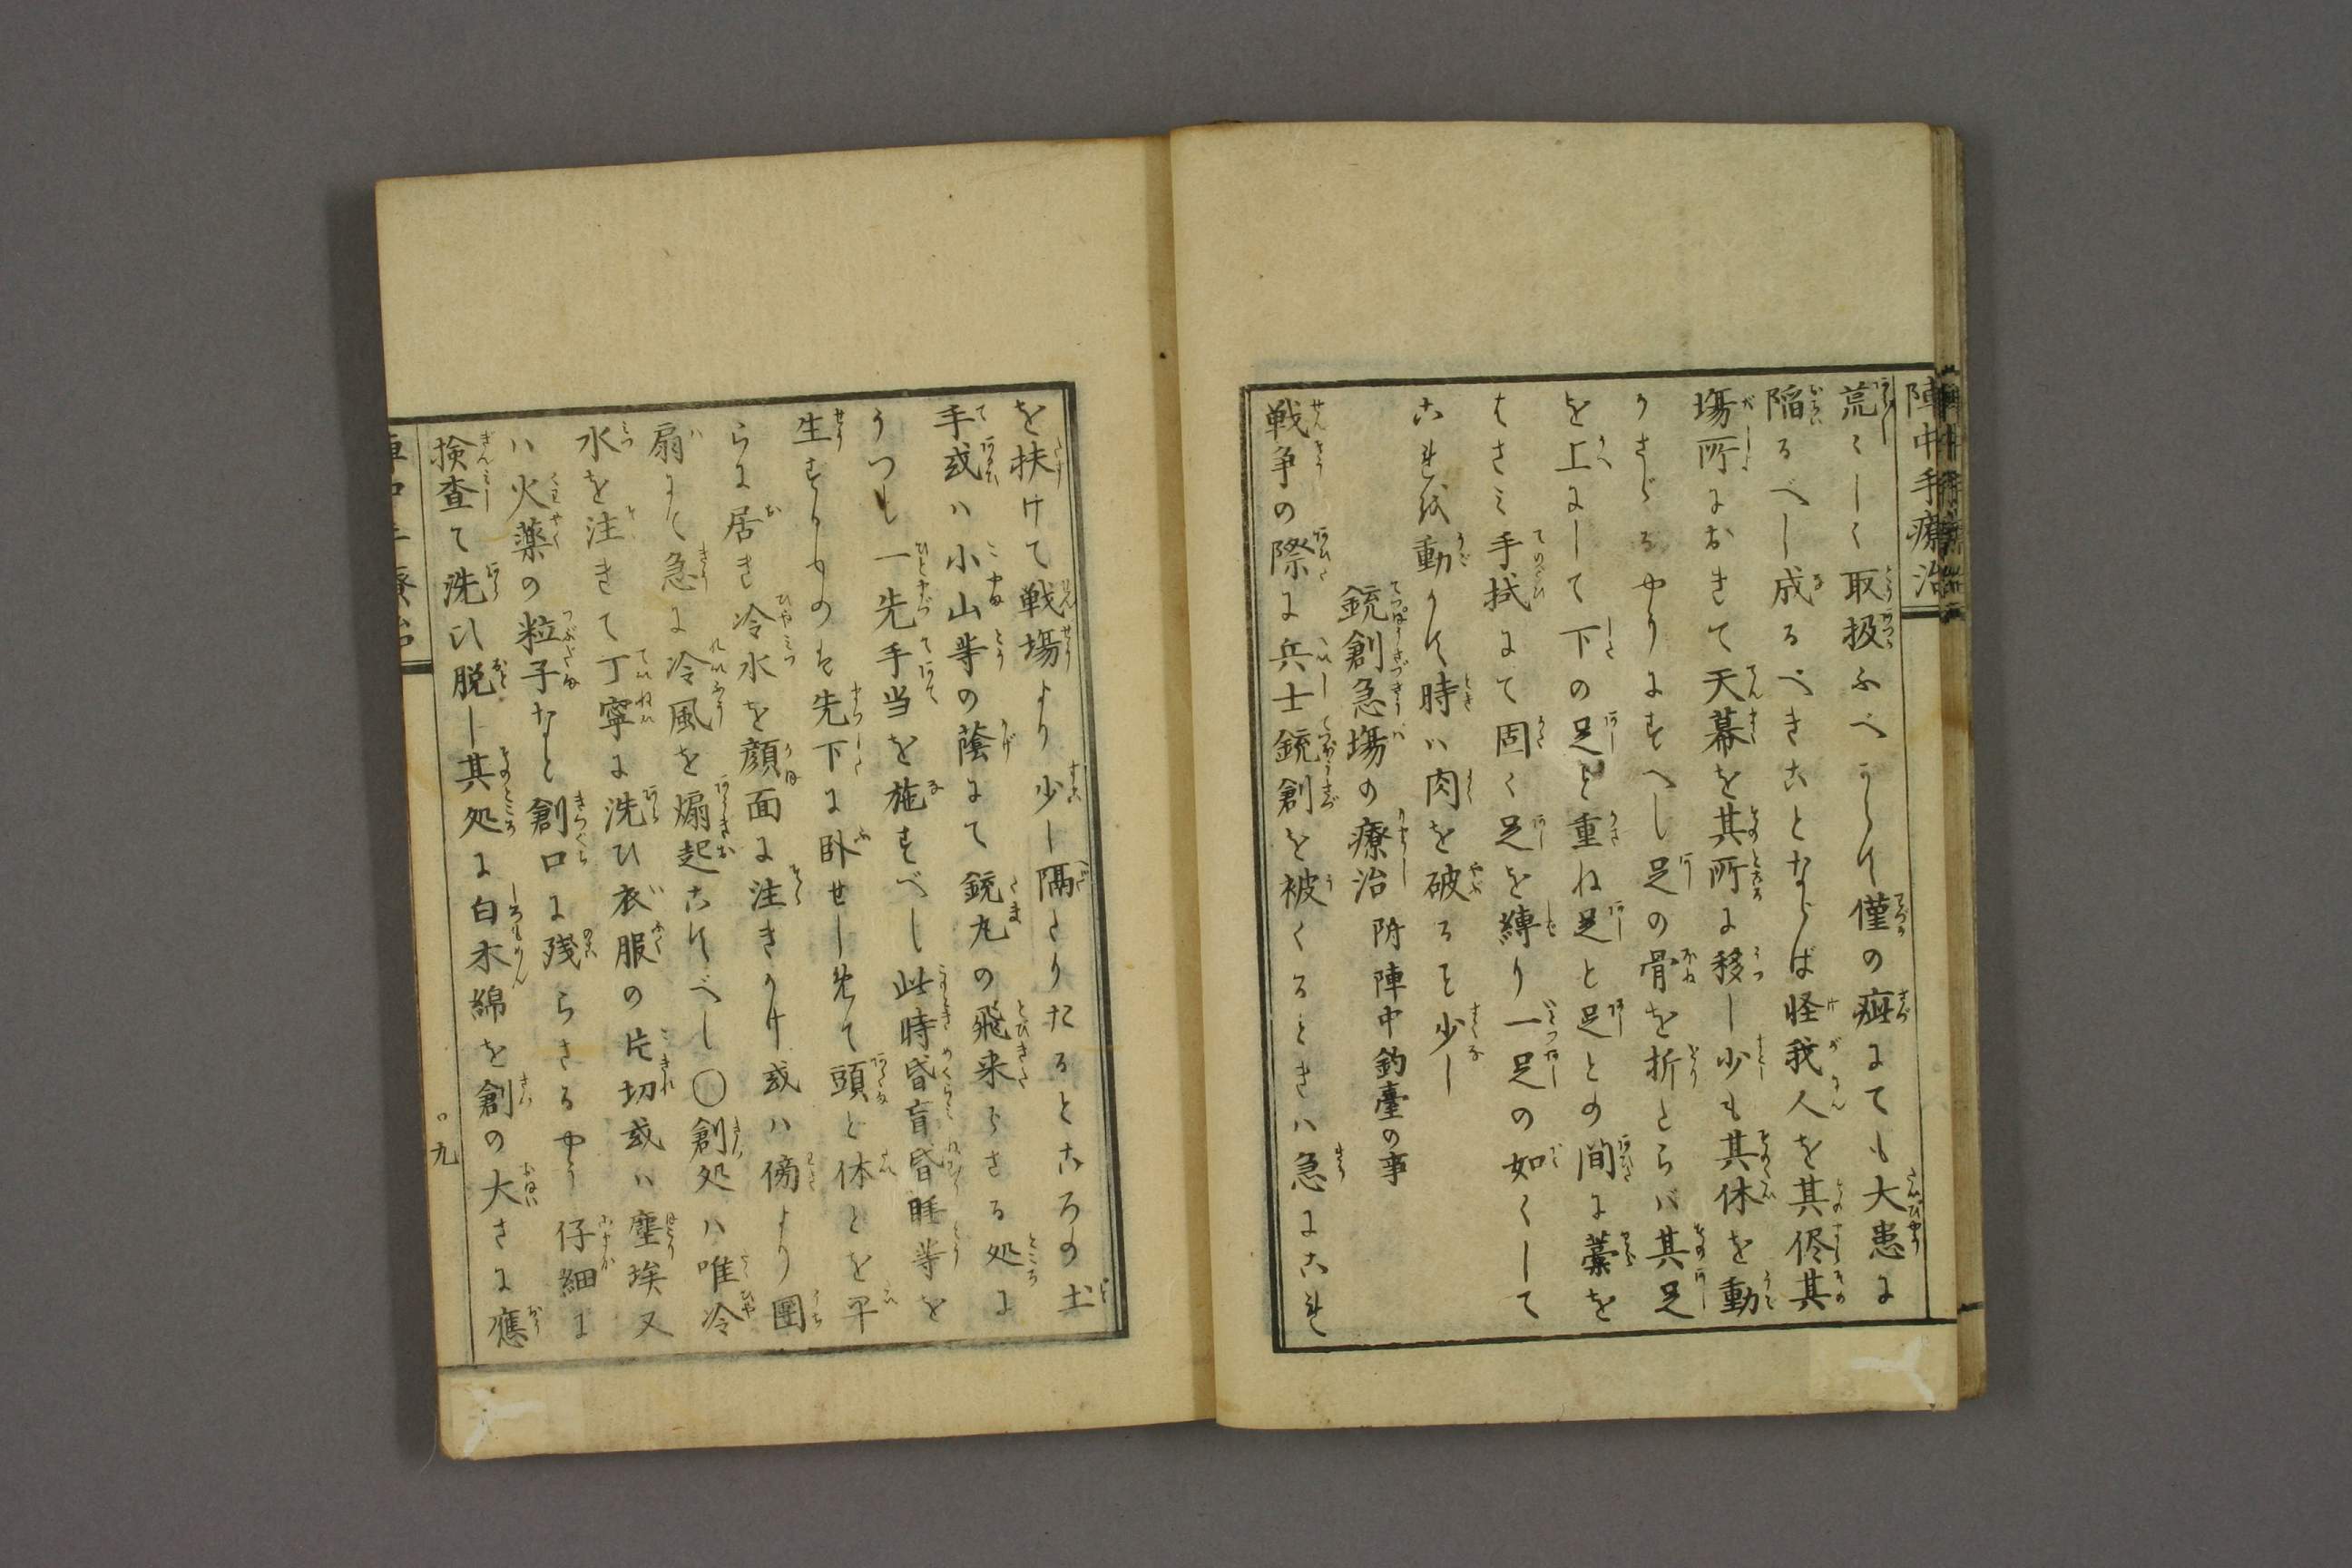 陣中手療治
荒々しく取扱ふべからず僅の疵にても大患に
陥るべし成るべきことならば怪我人を其侭其
場所におきて天幕を其所に移し少も其体を動
かさゞるやりにすへし足の骨を折とらバ其足
を上にして下の足と重ね足と足との間に藁を
はさミ手拭にて固く足を縛り一足の如くして
これを動かす時ハ肉を破ること少し
銃創急場の療治 附陣中釣臺の事
戦争の際に兵士銃創を被くるときハ急にこれ
を扶けて戦場より少し隔たりたるところの土
手或ハ小山等の蔭にて銃丸の飛来らさる処に
うつし一先手当を施すべし此時昏盲昏睡等を
生するものは先下に臥せしめて頭と体とを平
らに居き冷水を顔面に注きかけ或ハ傍より團
扇にて急に冷風を煽起こすべし〇創処ハ唯冷
水を注きて丁寧に洗ひ衣服の片切或ハ塵埃又
ハ火薬の粒子など創口に残らさるやう仔細に
検査て洗ひ脱し其処に白木綿を創の大さに應
九